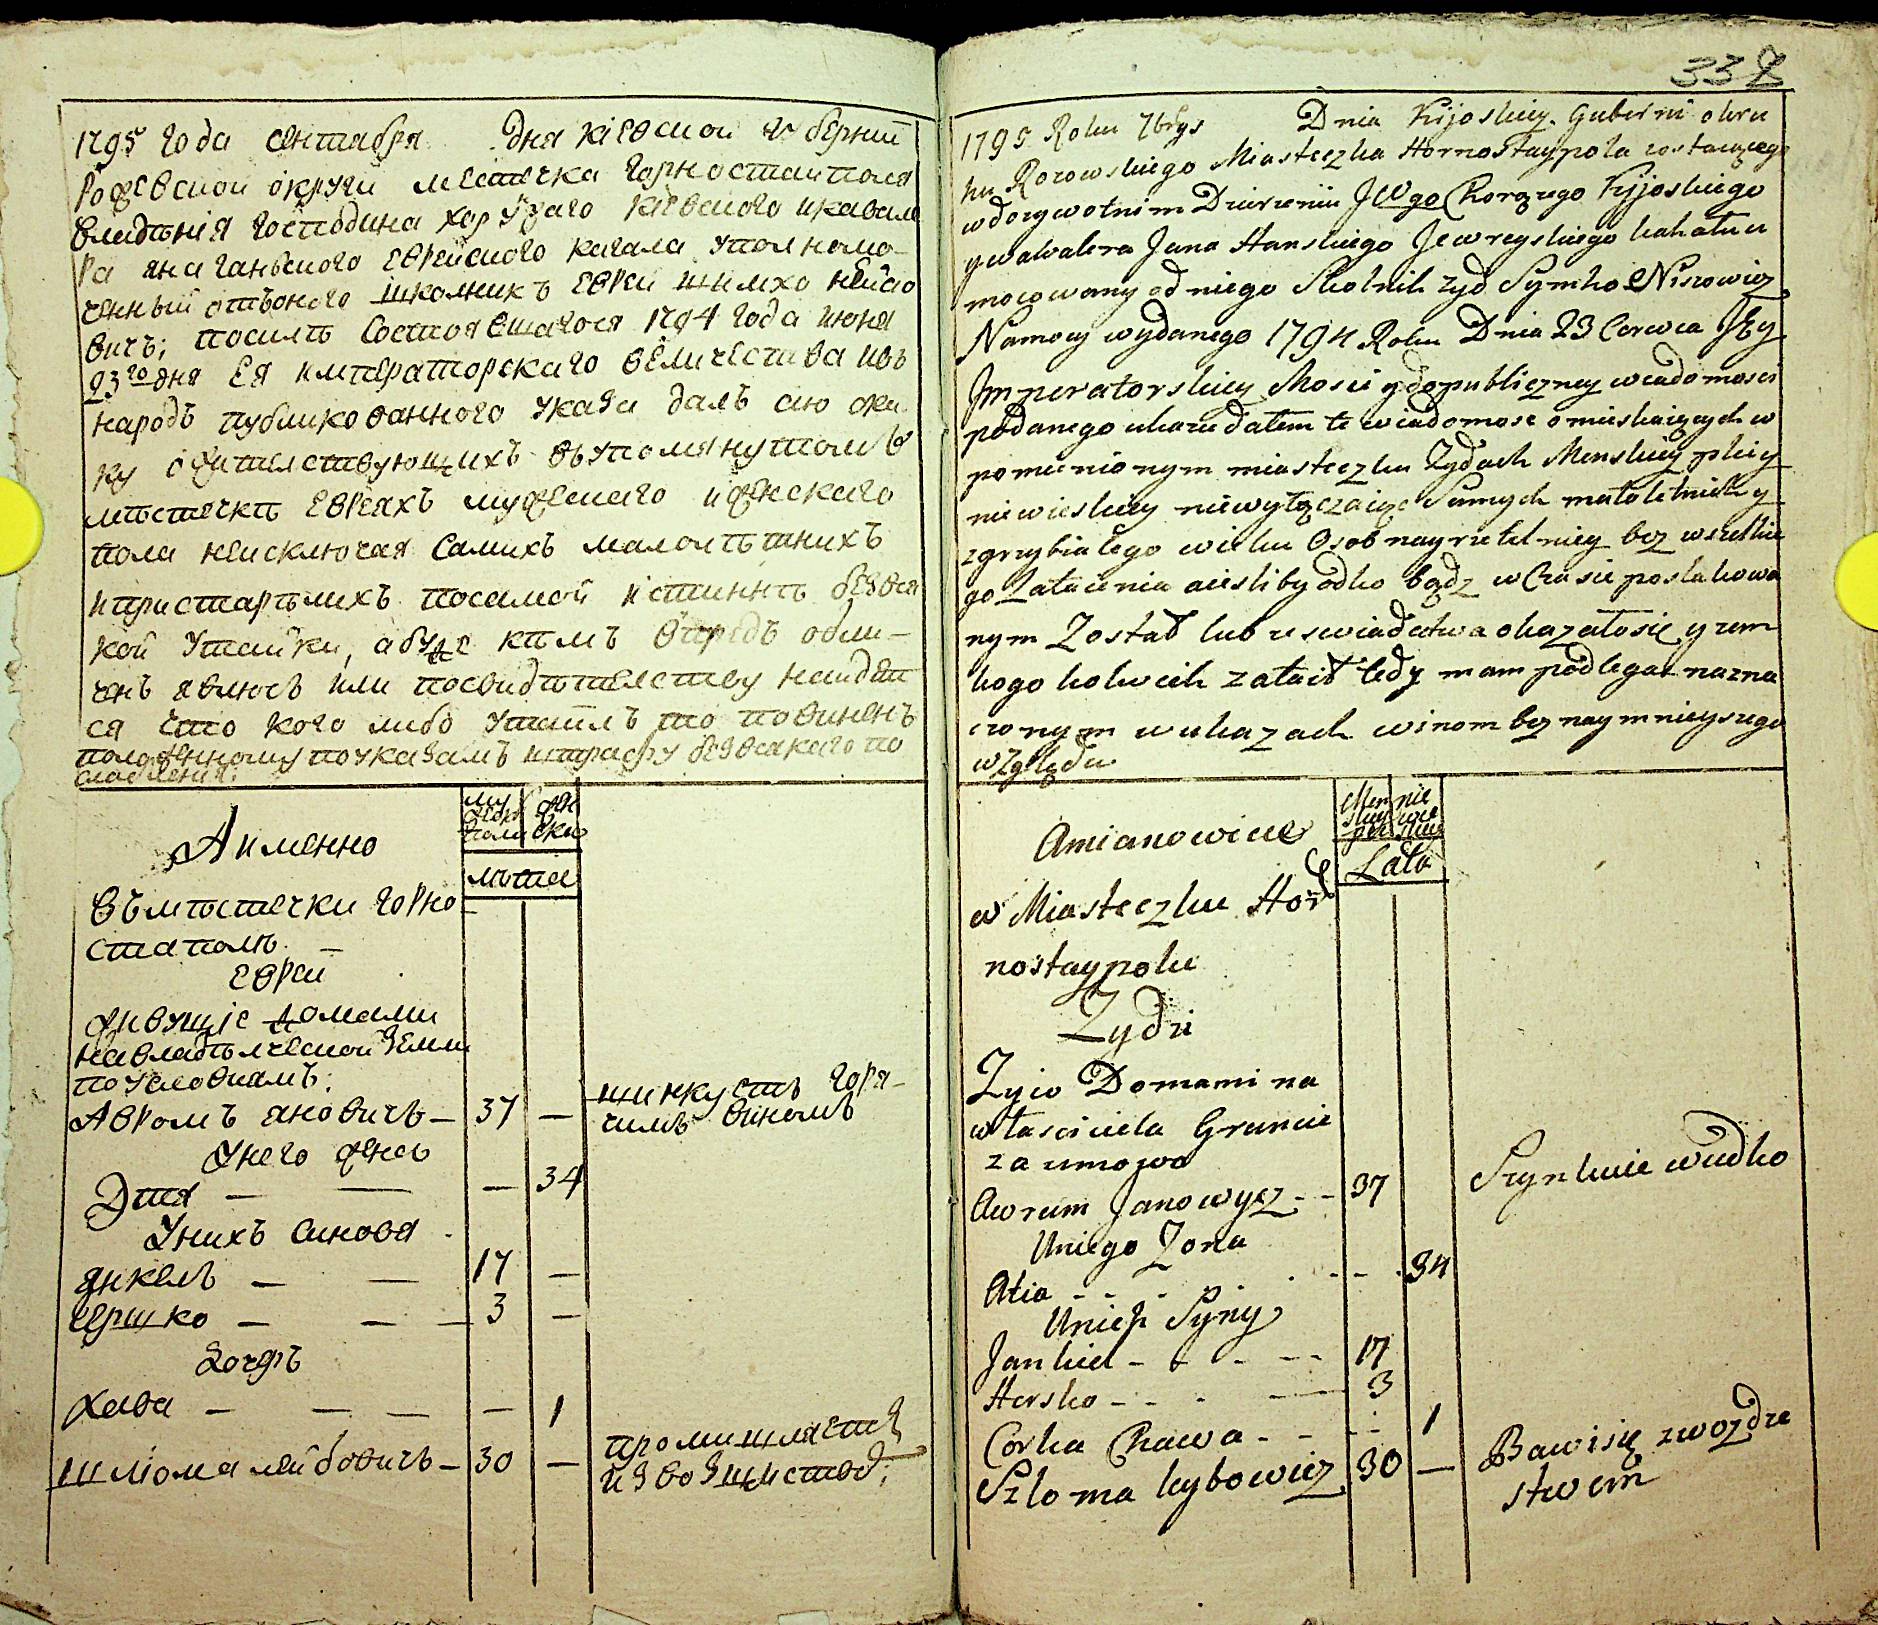 1795 года сентября дня кiевской губернии
Рожевской округи местечка горностаиполя
владѣнiя господина хорунжаго кiевского икавале
ра яна ганьского еврейского кагала уполномо-
ченный отъоного школникъ еврей шимхо нейсо
вичъ; посилѣ состоявшагося 1794 года июня
23го дня Ея императорскаго величества ивъ
народъ публикованного указа далъ сию ска
ску обителствующихъ въупомянутомъ
мѣстечкѣ евреяхъ мужескаго иженскаго
пола неисключая самихъ малолѣтнихъ
ипристарѣлихъ посамой истиннѣ безвся
кой утайки, абуде кѣмъ впредъ обли-
ченъ явлюсъ или посвидѣтелству найдет
ся что кого либо утаилъ то повиненъ
положенному поуказамъ штрафу безвсякаго по
слабления:
Аименно
му
жеска
пола
жен
ска
лѣта
Въмѣстечки горно-
стаполѣ. -
еврей
живущiе домами
навладѣлческой земли
поусловиамъ:
Авромъ яновичъ - 37 - шинкуетъ горя-
чимъ виномъ
Унего жена
Дтя - - - 34
Унихъ синовя
янкель - - 17 -
гершко - - - 3 -
Дочеръ
хава - - - - 1
шлiома лейбовичъ - 30 - промишляетъ
извозничеством;
332
1795 Roku 7brys Dnia Kijoskiey Guberni okru
hu Rozowskiego Miasteczka Hornostaypola zostaiącego
wdozywotnim Dzierzeniu JWgo Chorązego Kijoskiego
ykawalera Jana Hanskiego Jewreyskiego kahału u
mocowany od niego Skolnik zyd Symho Nisowicz
Namocy wydanego 1794 Roku Dnia 23 Czerwca JEy
Jmperatorskiey Mosci ydopubliczney wiadomosci
podanego ukazu dałem te wiadomosc omieskaiących w
pomienionym miasteczku Zydach Menskiey płciy
niewieskiey niewyłączaiąc Samych małoletnich y
zgrzybiałego wieku Osob nayrzetelniey bez wszelkie
go Zataienia aiesliby odko bądz wCzasie poslakowa
nym Został lub uswiadectwa okazałosię yzem
kogo kolwiek zataił tedy mam podlegac nazna
czonym wukazach winom bez naymnieyszego
względu
Amianowicie
Men
skiey
płci
nie
wie
skiey
Lata
w Miasteczku Hor
nostaypolu
Zydzi
Zyio Domami na
własciciela Gruncie
za umowo
Awrum Janowycz - - 37 Szynkuie wudko
Uniego Zona
Atia - - - - - 34
Unich Syny
Jankiel - - - - 17
Hersko - - - - 3
Corka Chawa - - - 1
Szloma leybowicz 30 - Bawisię zwozdze
stwem